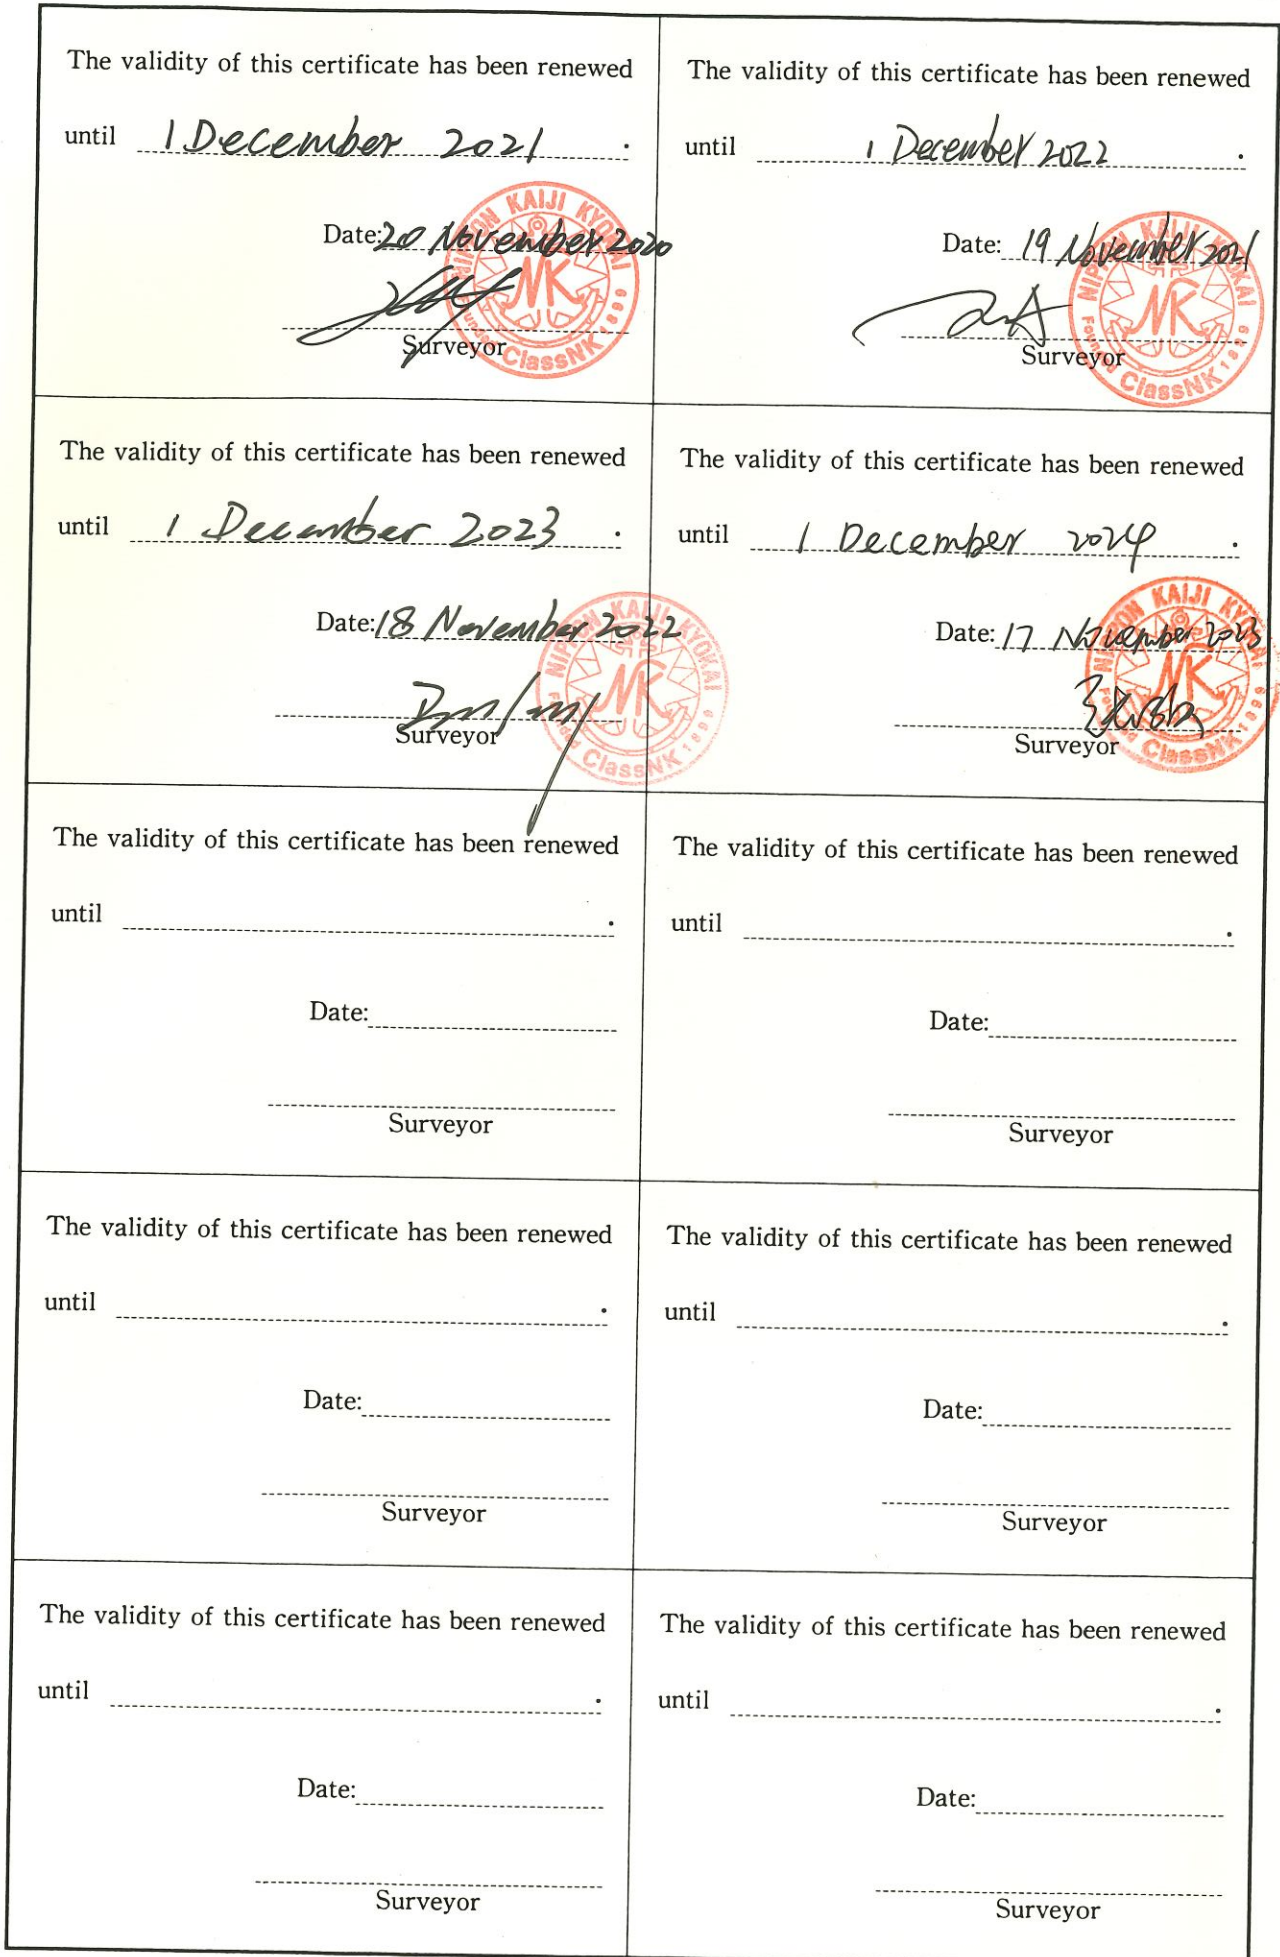 The validity of this certificate has been renewed
until 1 December 2021 .
Date: 20 November 2020
Surveyor
NIPPON KAIJI KYOKAI
NK
Founded ClassNK 1899
The validity of this certificate has been renewed
until 1 December 2022 .
Date: 19 November 2021
Surveyor
NIPPON KAIJI KYOKAI
NK
Founded ClassNK 1899
The validity of this certificate has been renewed
until 1 December 2023 .
Date: 18 November 2022
Surveyor
NIPPON KAIJI KYOKAI
NK
Founded ClassNK 1899
The validity of this certificate has been renewed
until 1 December 2024 .
Date: 17 November 2023
Surveyor
NIPPON KAIJI KYOKAI
NK
Founded ClassNK 1899
The validity of this certificate has been renewed
until .
Date:
Surveyor
The validity of this certificate has been renewed
until .
Date:
Surveyor
The validity of this certificate has been renewed
until .
Date:
Surveyor
The validity of this certificate has been renewed
until .
Date:
Surveyor
The validity of this certificate has been renewed
until .
Date:
Surveyor
The validity of this certificate has been renewed
until .
Date:
Surveyor